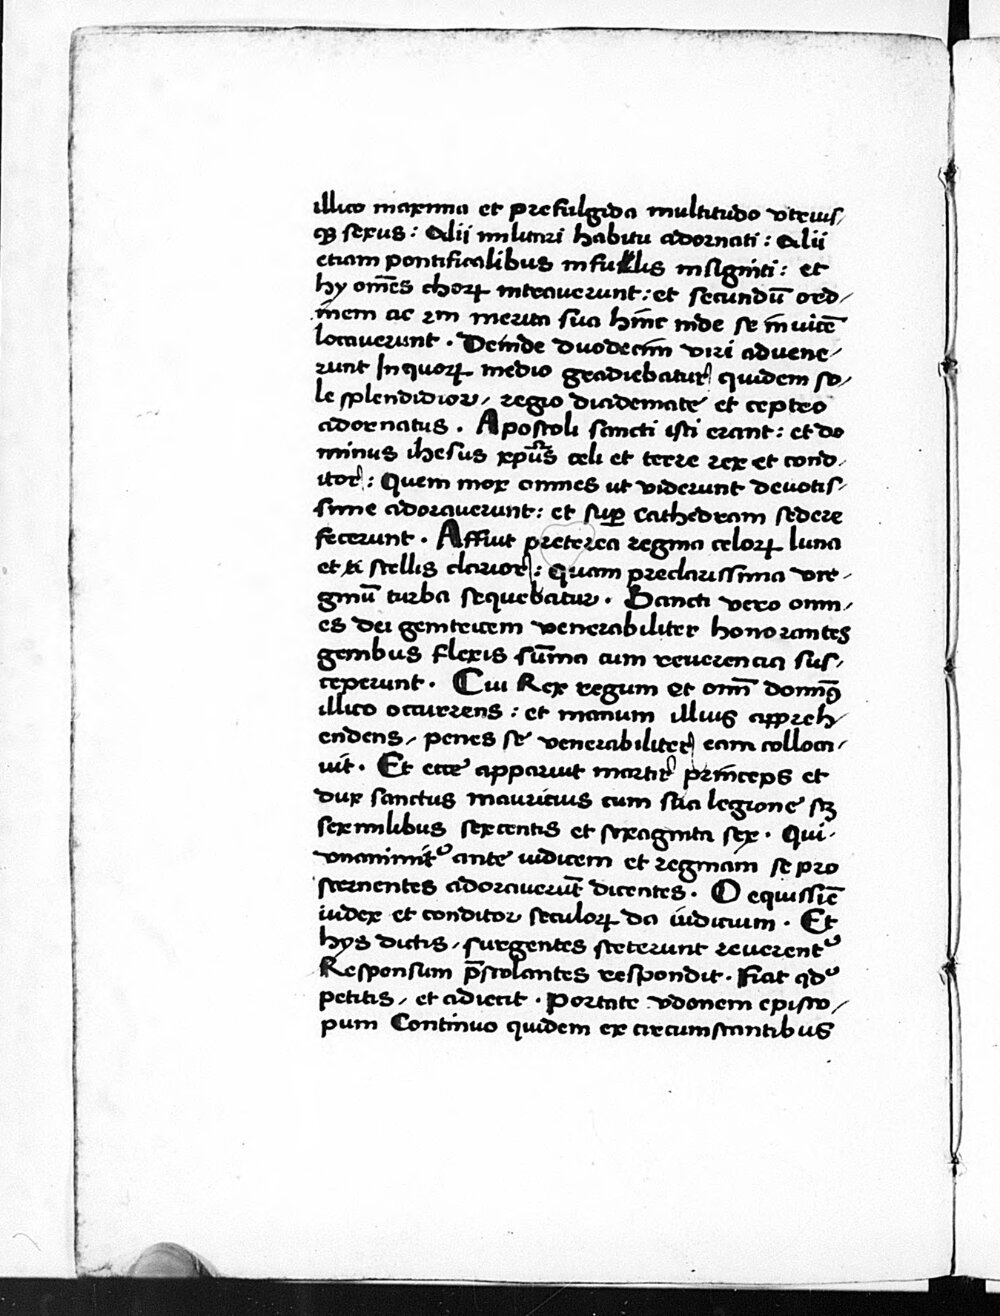 illico maxima et prefulgida multitudo vtrius/
qꝫ sexus : Alii militari habitu adornati : Alii
etiam pontificalibus infullis insigniti : et
hy om̄es choꝝ intrauerunt : et secundū ord/
inem ac iux merita sua hinc inde se inuicē
locauerunt . Deinde duodecim viri aduene/
runt In quoꝝ medio gradiebatur quidem so/
le splendidior / regio diademate et ceptro
adornatus . Apostoli sancti isti erant : et do
minus ihesus xp̄us celi et terre rex et cond/
itor : Quem mox omnes ut viderunt deuotis/
sime adorauerunt : et sup̄ cathedram sedere
fecerunt . Affuit preterea regina celoꝝ luna
et stellis clarior : quam preclarissima vir/
ginū turba sequebatur . Sancti vero omn/
es dei genitricem venerabiliter honorantes
genibus flexis sūma cum reuerencia sus/
ceperunt . Cui Rex regum et om̄ domīꝰ
illico occurrens : et manum illius appreh/
endens / penes se venerabiliter eam colloca/
uit . Et ecce apparuit martir princeps et
dux sanctus mauricius cum sua legione sꝫ
sex milibus sexcentis et sexaginta sex . Qui/
vnanimitͦ ante iudicem et reginam se pro
sternentes adorauerūt dicentes . O equissīe
iudex et conditor seculoꝝ da iudicium . Et
hys dictis / surgentes steterunt reuerentͦ
Responsum p̄stolantes respondit . Fiat qdͦ
petitis / et adiecit . Portate vdonem episco/
pum Continuo quidem ex circumstantibus